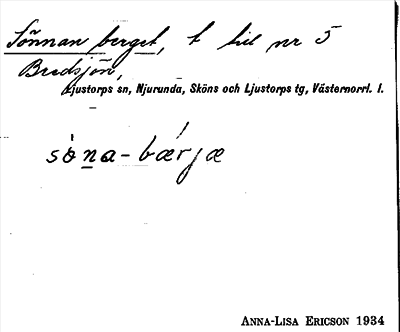 Sönnan berget, t till nr 5
Bredsjön,
Ljustorps sn, Njurunda, Sköns och Ljustorps tg, Västernorrl. l.
sȯ̀na-bǽrjæ
ANNA-LISA ERICSON 1934